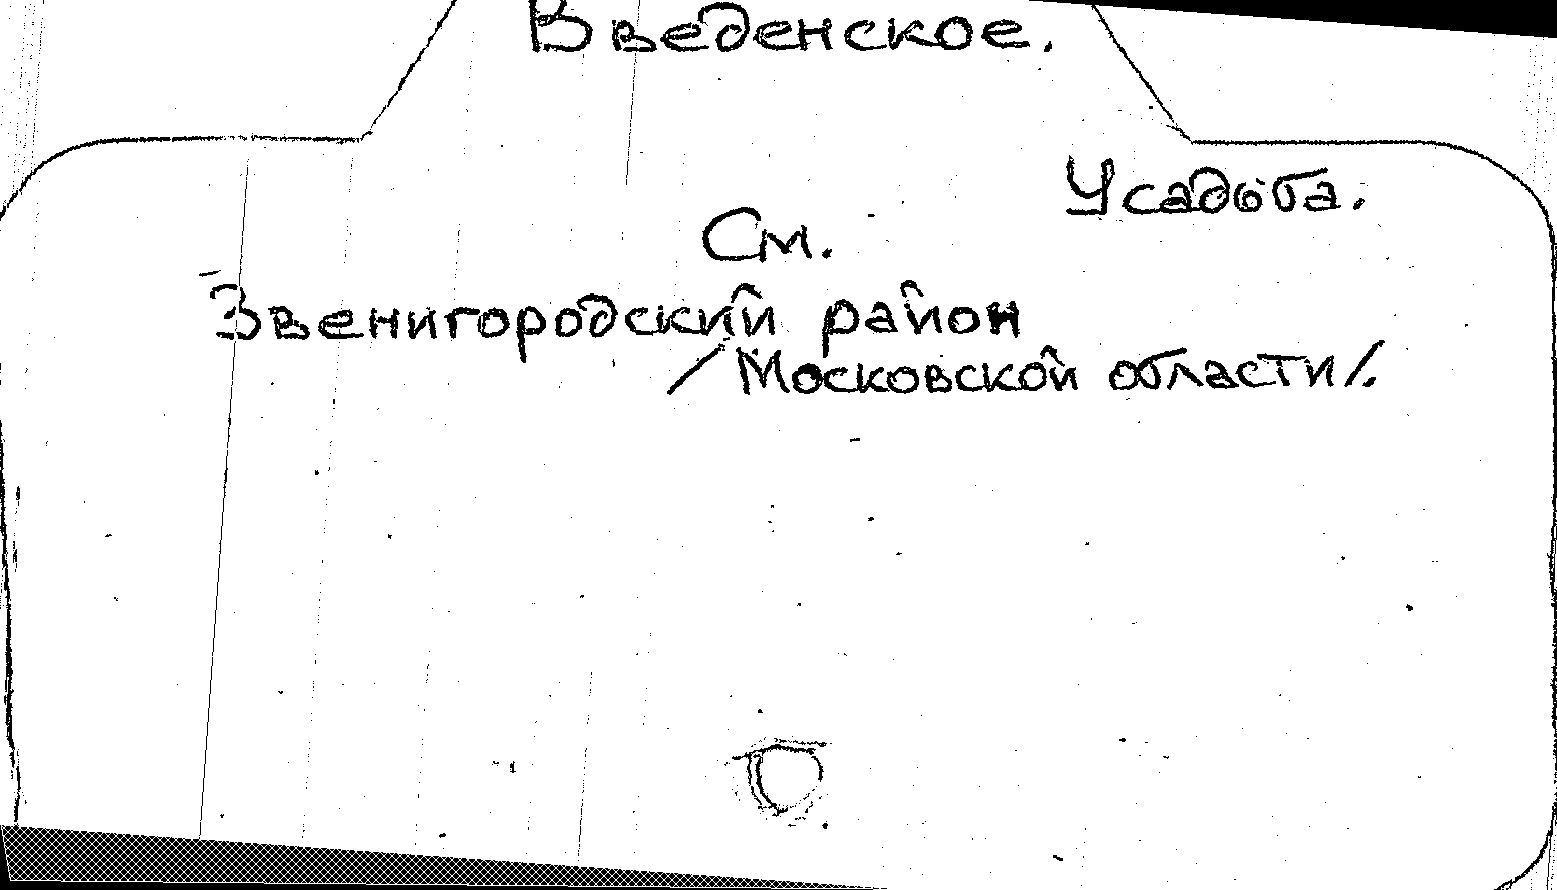 Введенское.
Усадьба.
См.
Звенигородский район
/Московской области/.